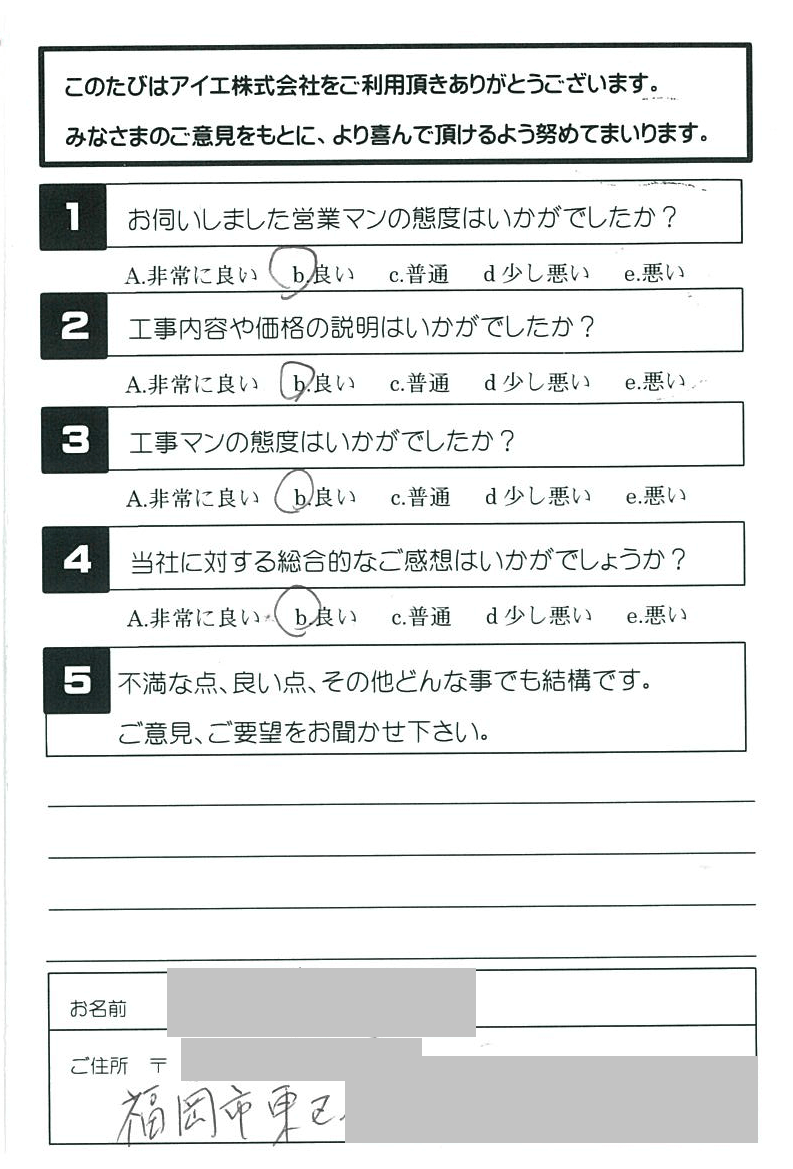 このたびはアイエ株式会社をご利用頂きありがとうございます。
みなさまのご意見をもとに、より喜んで頂けるよう努めてまいります。
1 お伺いしました営業マンの態度はいかがでしたか？
A.非常に良い b.良い c.普通 d 少し悪い e.悪い
2 工事内容や価格の説明はいかがでしたか？
A.非常に良い b.良い c.普通 d 少し悪い e.悪い
3 工事マンの態度はいかがでしたか？
A.非常に良い b.良い c.普通 d 少し悪い e.悪い
4 当社に対する総合的なご感想はいかがでしょうか？
A.非常に良い b.良い c.普通 d 少し悪い e.悪い
5 不満な点、良い点、その他どんな事でも結構です。
ご意見、ご要望をお聞かせ下さい。
お名前
ご住所 〒
福岡市東区